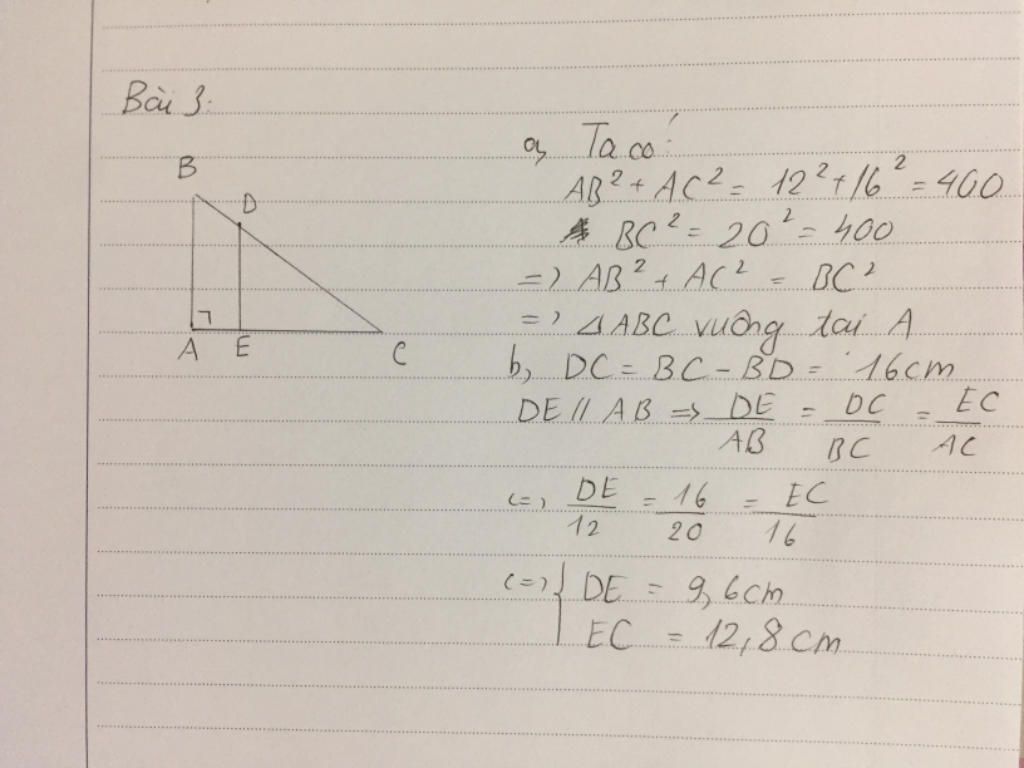 Bài 3:
B
D
A E C
a, Ta có:
AB² + AC² = 12² + 16² = 400
BC² = 20² = 400
=> AB² + AC² = BC²
=> ΔABC vuông tại A
b, DC = BC - BD = 16cm
DE // AB => DE/AB = DC/BC = EC/AC
<=> DE/12 = 16/20 = EC/16
<=> { DE = 9,6cm
EC = 12,8cm